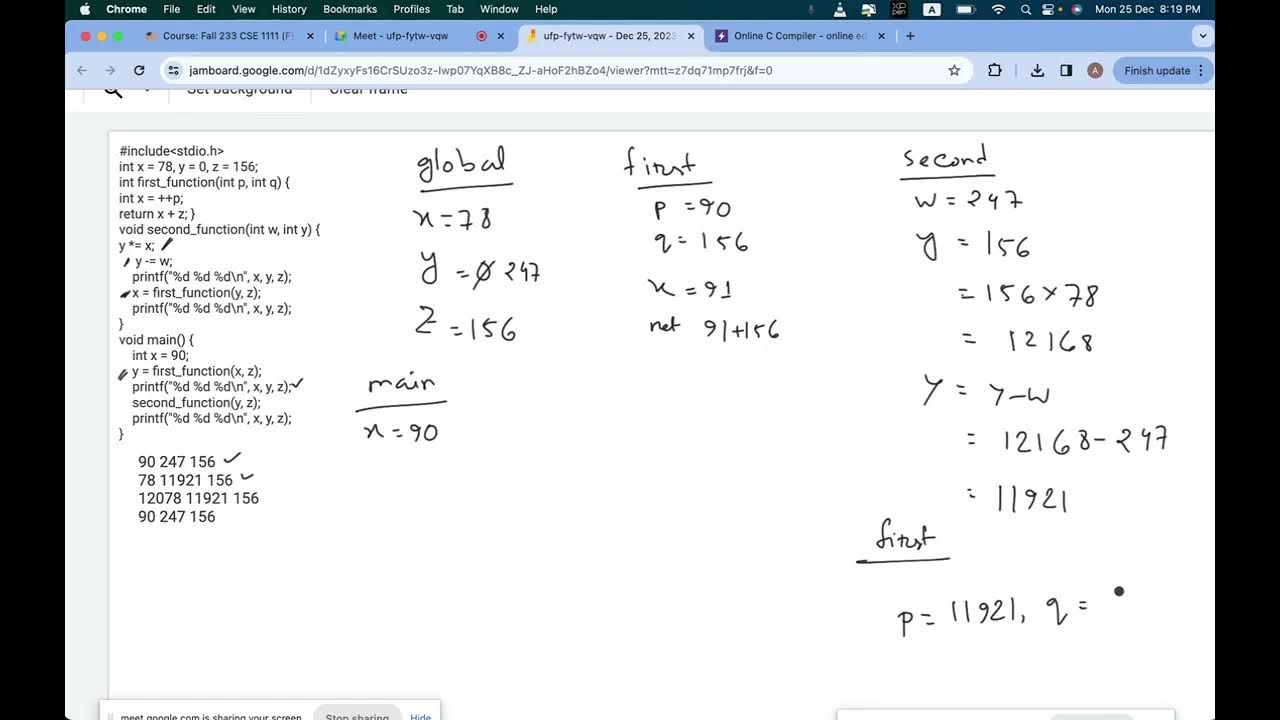 Chrome File Edit View History Bookmarks Profiles Tab Window Help XP PEN A Mon 25 Dec 8:19 PM
Course: Fall 233 CSE 1111 (F) Meet - ufp-fytw-vqw ufp-fytw-vqw - Dec 25, 2023 Online C Compiler - online ed
jamboard.google.com/d/1dZyxyFs16CrSUzo3z-Iwp07YqXB8c_ZJ-aHoF2hBZo4/viewer?mtt=z7dq71mp7frj&f=0 A Finish update
Set background Clear frame
#include<stdio.h>
int x = 78, y = 0, z = 156;
int first_function(int p, int q) {
int x = ++p;
return x + z; }
void second_function(int w, int y) {
y *= x;
y -= w;
printf("%d %d %d\n", x, y, z);
x = first_function(y, z);
printf("%d %d %d\n", x, y, z);
}
void main() {
int x = 90;
y = first_function(x, z);
printf("%d %d %d\n", x, y, z);
second_function(y, z);
printf("%d %d %d\n", x, y, z);
}
90 247 156
78 11921 156
12078 11921 156
90 247 156
global
x = 78
y = 0 247
Z = 156
main
x = 90
first
p = 90
q = 156
x = 91
ret 91+156
second
w = 247
y = 156
= 156 × 78
= 12168
y = y-w
= 12168 - 247
= 11921
first
p = 11921, q =
meet.google.com is sharing your screen. Stop sharing Hide